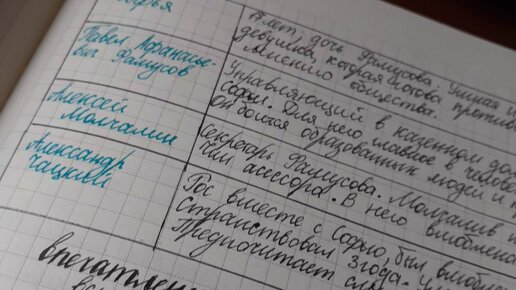 17 лет, дочь Фамусова. Умная и
девушка, которая готова противо
мнению общества.
Павел Афанасье-
вич Фамусов
Управляющий в казенном дом
Софьи. Для него главное в человек
Он боится образованных людей и п
Алексей
Молчалин
Секретарь Фамусова. Молчалив и
чин асессора. В него влюблена
Александр
Чацкий
Рос вместе с Софью, был влюблен
странствовал 3 года.
Предпочитает
впечатлен